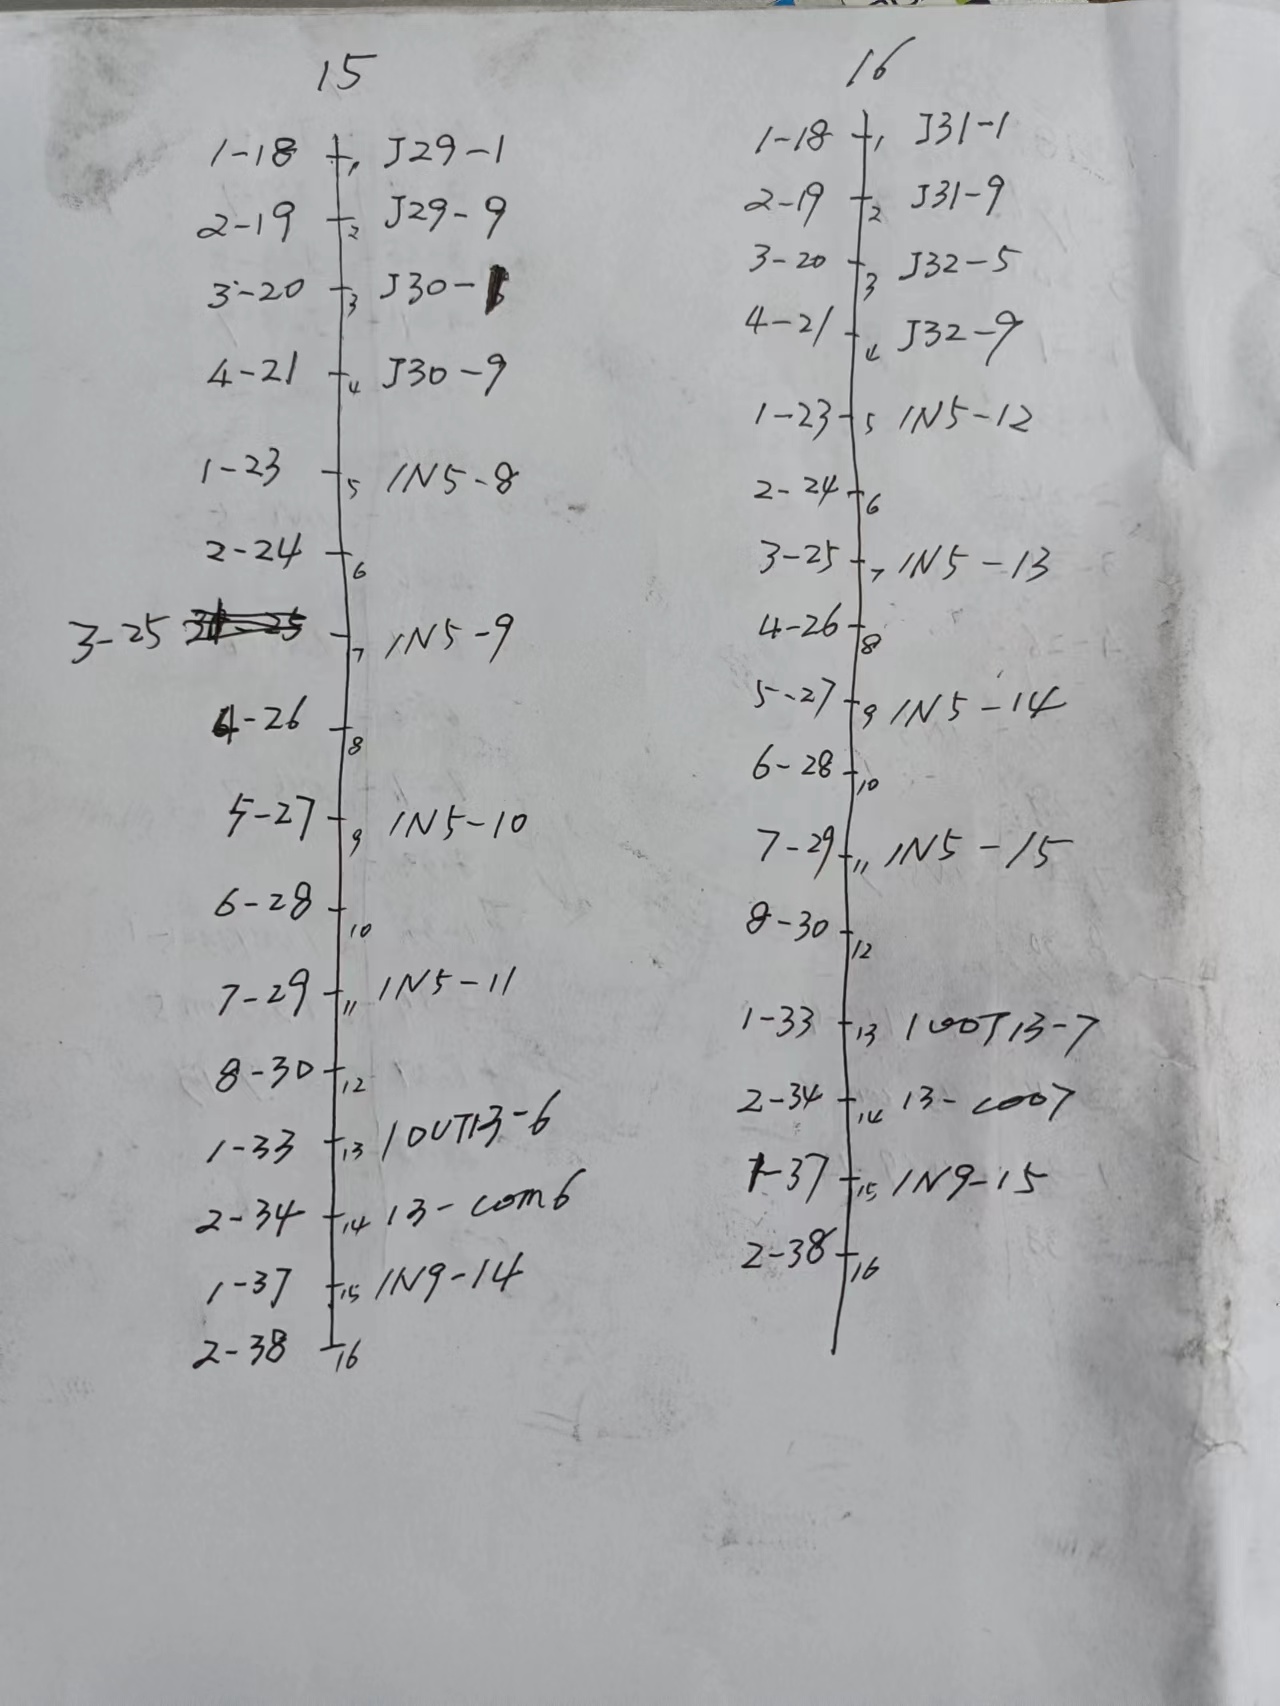 15
1-18 1 J29-1
2-19 2 J29-9
3-20 3 J30-
4-21 4 J30-9
1-23 5 1N5-8
2-24 6
3-25 7 1N5-9
4-26 8
5-27 9 1N5-10
6-28 10
7-29 11 1N5-11
8-30 12
1-33 13 1OUT13-6
2-34 14 13-com6
1-37 15 1N9-14
2-38 16
16
1-18 1 J31-1
2-19 2 J31-9
3-20 3 J32-5
4-21 4 J32-9
1-23 5 1N5-12
2-24 6
3-25 7 1N5-13
4-26 8
5-27 9 1N5-14
6-28 10
7-29 11 1N5-15
8-30 12
1-33 13 1OOT13-7
2-34 14 13-coo7
1-37 15 1N9-15
2-38 16